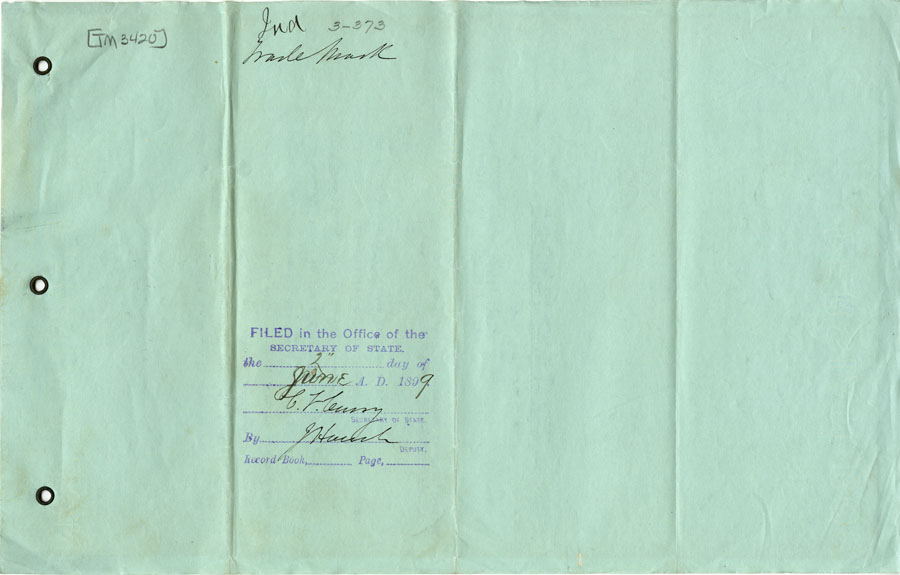 [TM 3420]
Ind 3-373
Trade Mark
FILED in the Office of the
SECRETARY OF STATE.
the 2" day of
June A. D. 1899
C. F. Curry
SECRETARY OF STATE.
By
DEPUTY.
Record Book, Page,